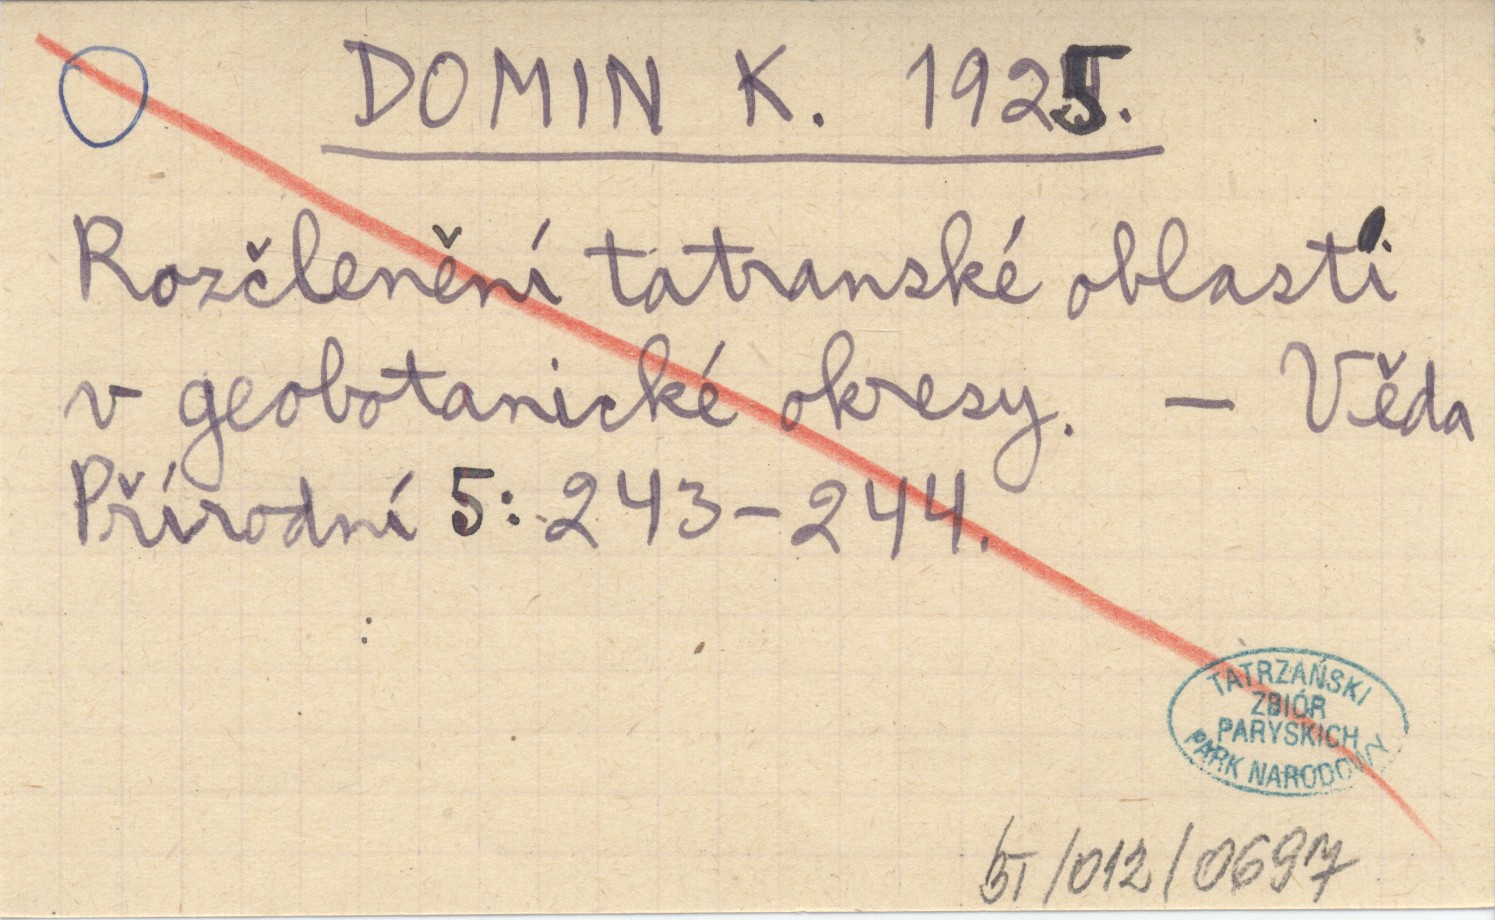 DOMIN K. 1925.
Rozčlenění tatranské oblasti
v geobotanické okresy. — Věda
Přírodní 5: 243-244.
TATRZAŃSKI
ZBIÓR
PARYSKICH
PARK NARODOWY
/012/0697